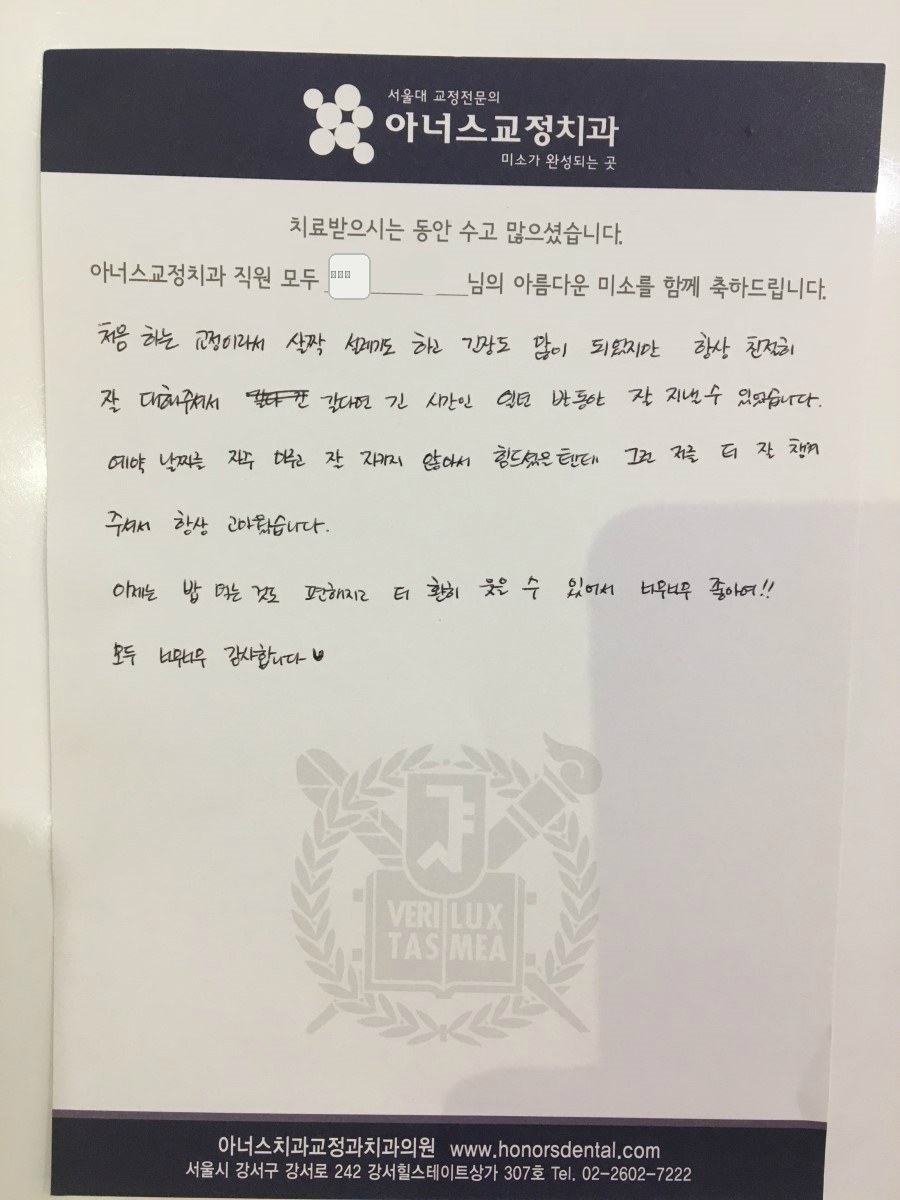 서울대 교정전문의
아너스교정치과
미소가 완성되는 곳
치료받으시는 동안 수고 많으셨습니다.
아너스교정치과 직원 모두 님의 아름다운 미소를 함께 축하드립니다.
처음 하는 교정이라서 살짝 설레기도 하고 긴장도 많이 되었지만 항상 친절히
잘 대해주셔서 길다면 긴 시간인 일년 반동안 잘 지낼 수 있었습니다.
예약 날짜를 자주 미루고 잘 지키지 않아서 힘드셨을텐데 그런 저를 더 잘 챙겨
주셔서 항상 고마웠습니다.
이제는 밥 먹는 것도 편해지고 더 환히 웃을 수 있어서 너무너무 좋아여!!
모두 너무너무 감사합니다
VERI LUX
TAS MEA
아너스치과교정과치과의원 www.honorsdental.com
서울시 강서구 강서로 242 강서힐스테이트상가 307호 Tel. 02-2602-7222